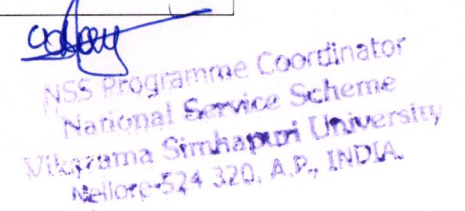 NSS Programme Coordinator
National Service Scheme
Vikrama Simhapuri University
Nellore-524 320, A.P., INDIA.